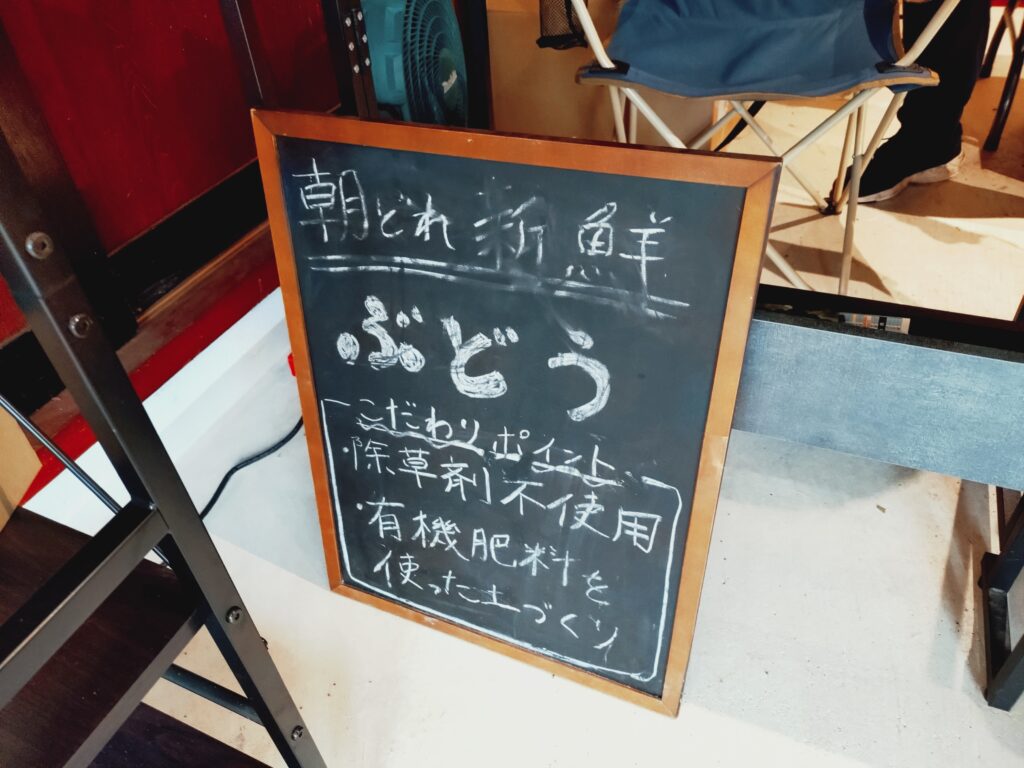 朝どれ 新鮮
ぶどう
こだわりポイント
・除草剤不使用
・有機肥料を
使った土づくり